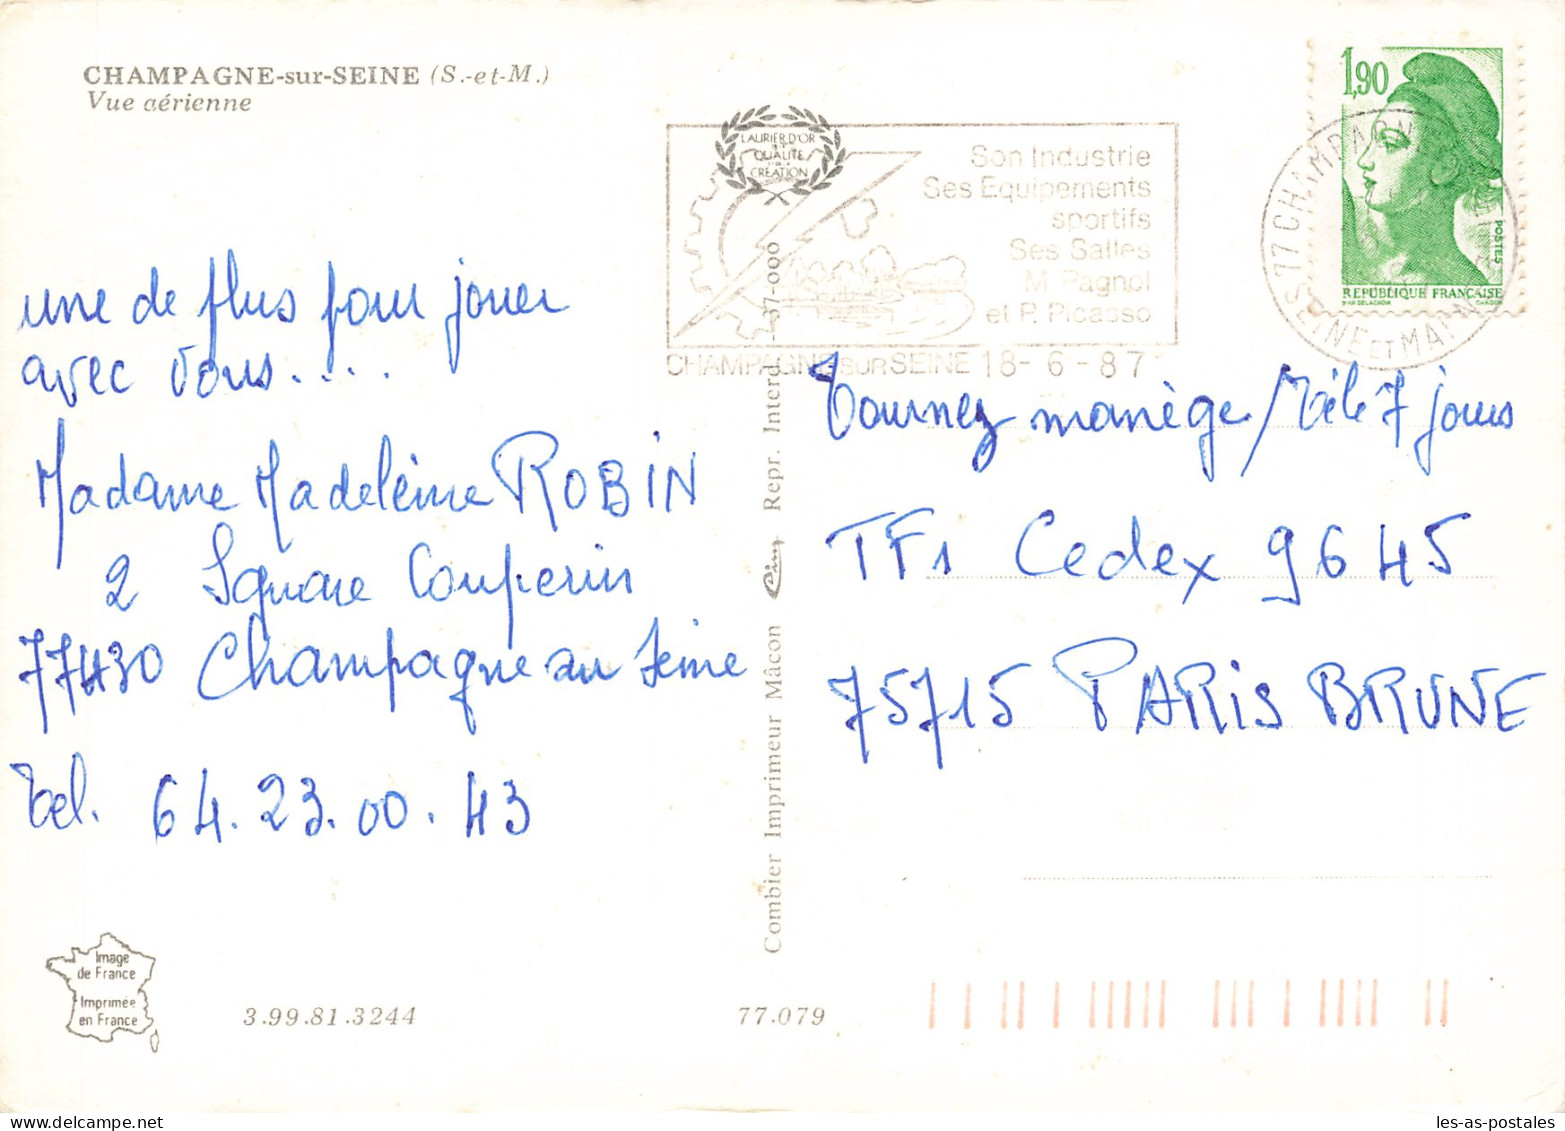 CHAMPAGNE-sur-SEINE (S.-et-M.)
Vue aérienne
une de plus pour jouer
avec vous....
Madame Madeleine ROBIN
2 Square Couperin
77430 Champagne su Seine
Tel. 64.23.00.43
Image
de France
Imprimée
en France
3.99.81.3244
77.079
Combier Imprimeur Mâcon Cim Repr. Interd. -37-000
LAURIER D'OR
QUALITÉ
CRÉATION
Son Industrie
Ses Equipements
sportifs
Ses Salles
M. Pagnol
et P. Picasso
CHAMPAGNE SUR SEINE 18-6-87
1,90
POSTES
REPUBLIQUE FRANÇAISE
77 CHAMPAGNE
SEINE ET MARNE
Tournez manège/Télé 7 jours
TF1 Cedex 9645
75715 PARIS BRUNE
les-as-postales